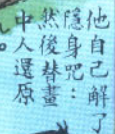 他自己解了
隱身咒：
然後替畫
中人還原
。